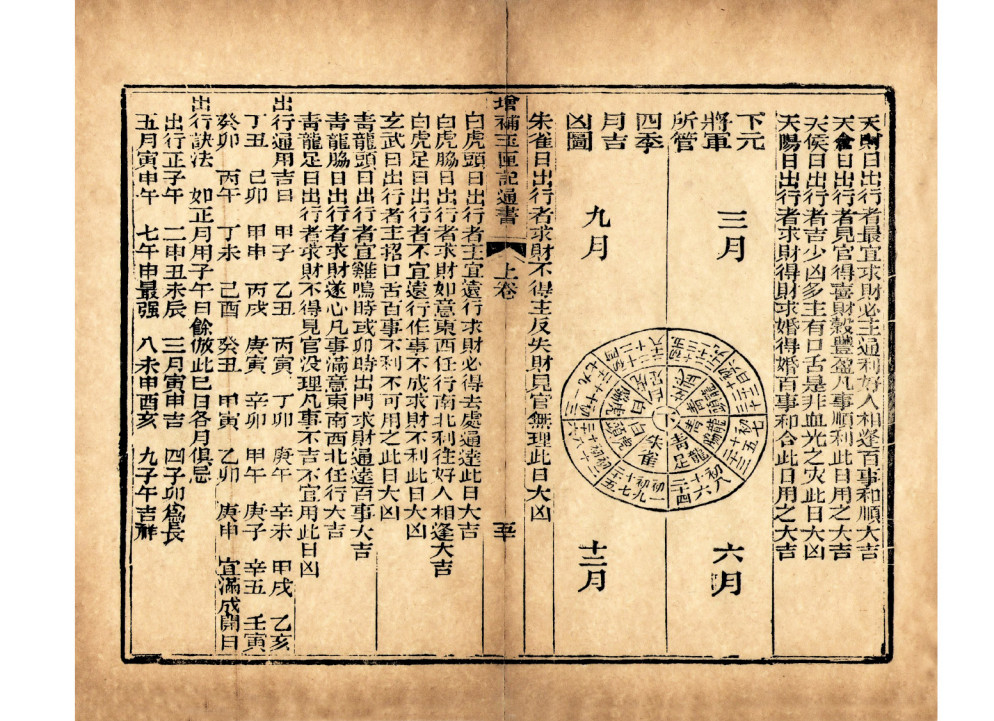 天財日出行者最宜求財必主通利好人相逢百事和順大吉
天倉日出行者見官得喜財穀豐盈凡事順利此日用之大吉
天侯日出行者吉少凶多主有口舌是非血光之灾此日大凶
天陽日出行者求財得財求婚得婚百事和合此日用之大吉
下元
將軍
所管
四季
月吉
凶圖
三月
六月
九月
十二月
朱雀
白虎頭
青龍足
朱雀日出行者求財不得主反失財見官無理此日大凶
增補玉匣記通書
上卷
白虎頭日出行者主宜遠行求財必得去處通達此日大吉
白虎脇日出行者求財如意東西任行南北利往好人相逢大吉
白虎足日出行者不宜遠行作事不成求財不利此日大凶
玄武日出行者主招口舌百事不利不可用之此日大凶
青龍頭日出行者宜雞鳴時或卯時出門求財通達百事大吉
青龍脇日出行者求財遂心凡事滿意東南西北任行大吉
青龍足日出行者求財不得見官沒理凡事不吉不宜用此日凶
出行通用吉日 甲子 乙丑 丙寅 丁卯 庚午 辛未 甲戌 乙亥
丁丑 己卯 甲申 丙戌 庚寅 辛卯 甲午 庚子 辛丑 壬寅
癸卯 丙午 丁未 己酉 癸丑 甲寅 乙卯 庚申 宜滿成開日
出行訣法 如正月用子午日餘倣此已日各月俱忌
出行正子午 二申丑未辰 三月寅申吉 四子卯爲長
五月寅申午 七午申最强 八未申酉亥 九子午吉祥